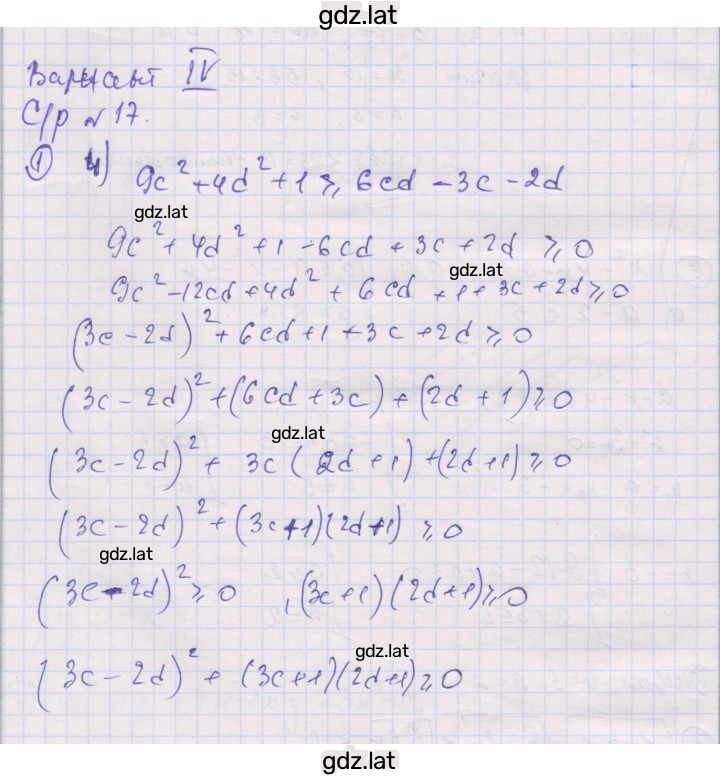 gdz.lat
Вариант IV
С/р №17.
① 4) 9c² + 4d² + 1 ⩾ 6cd − 3c − 2d
gdz.lat
9c² + 4d² + 1 − 6cd + 3c + 2d ⩾ 0
gdz.lat
9c² − 12cd + 4d² + 6cd + 1 + 3c + 2d ⩾ 0
(3c − 2d)² + 6cd + 1 + 3c + 2d ⩾ 0
(3c − 2d)² + (6cd + 3c) + (2d + 1) ⩾ 0
gdz.lat
(3c − 2d)² + 3c(2d + 1) + (2d + 1) ⩾ 0
(3c − 2d)² + (3c + 1)(2d + 1) ⩾ 0
gdz.lat
(3c − 2d)² ⩾ 0 , (3c + 1)(2d + 1) ⩾ 0
gdz.lat
(3c − 2d)² + (3c + 1)(2d + 1) ⩾ 0
gdz.lat